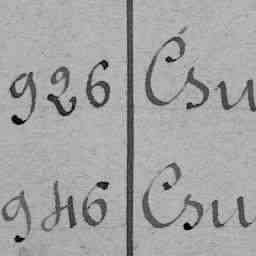 926 Csu
946 Csu